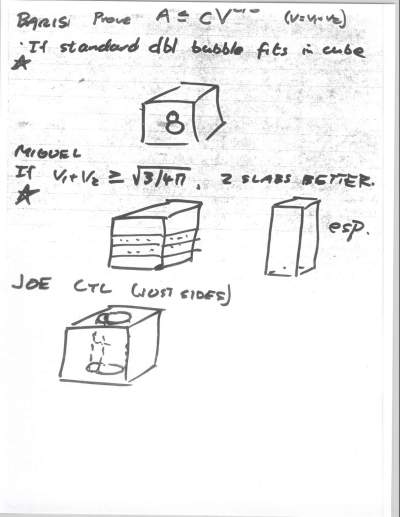 BARISI Prove A ≤ CV (V=V₁+V₂)
· If standard dbl bubble fits in cube
8
MIGUEL
If V₁+V₂ ≥ √3/4π, 2 SLABS BETTER.
esp.
JOE CYL (JUST SIDES)